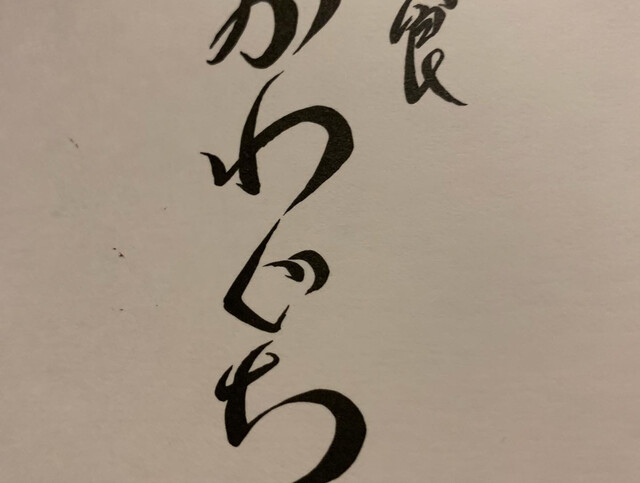 食
かわぐち